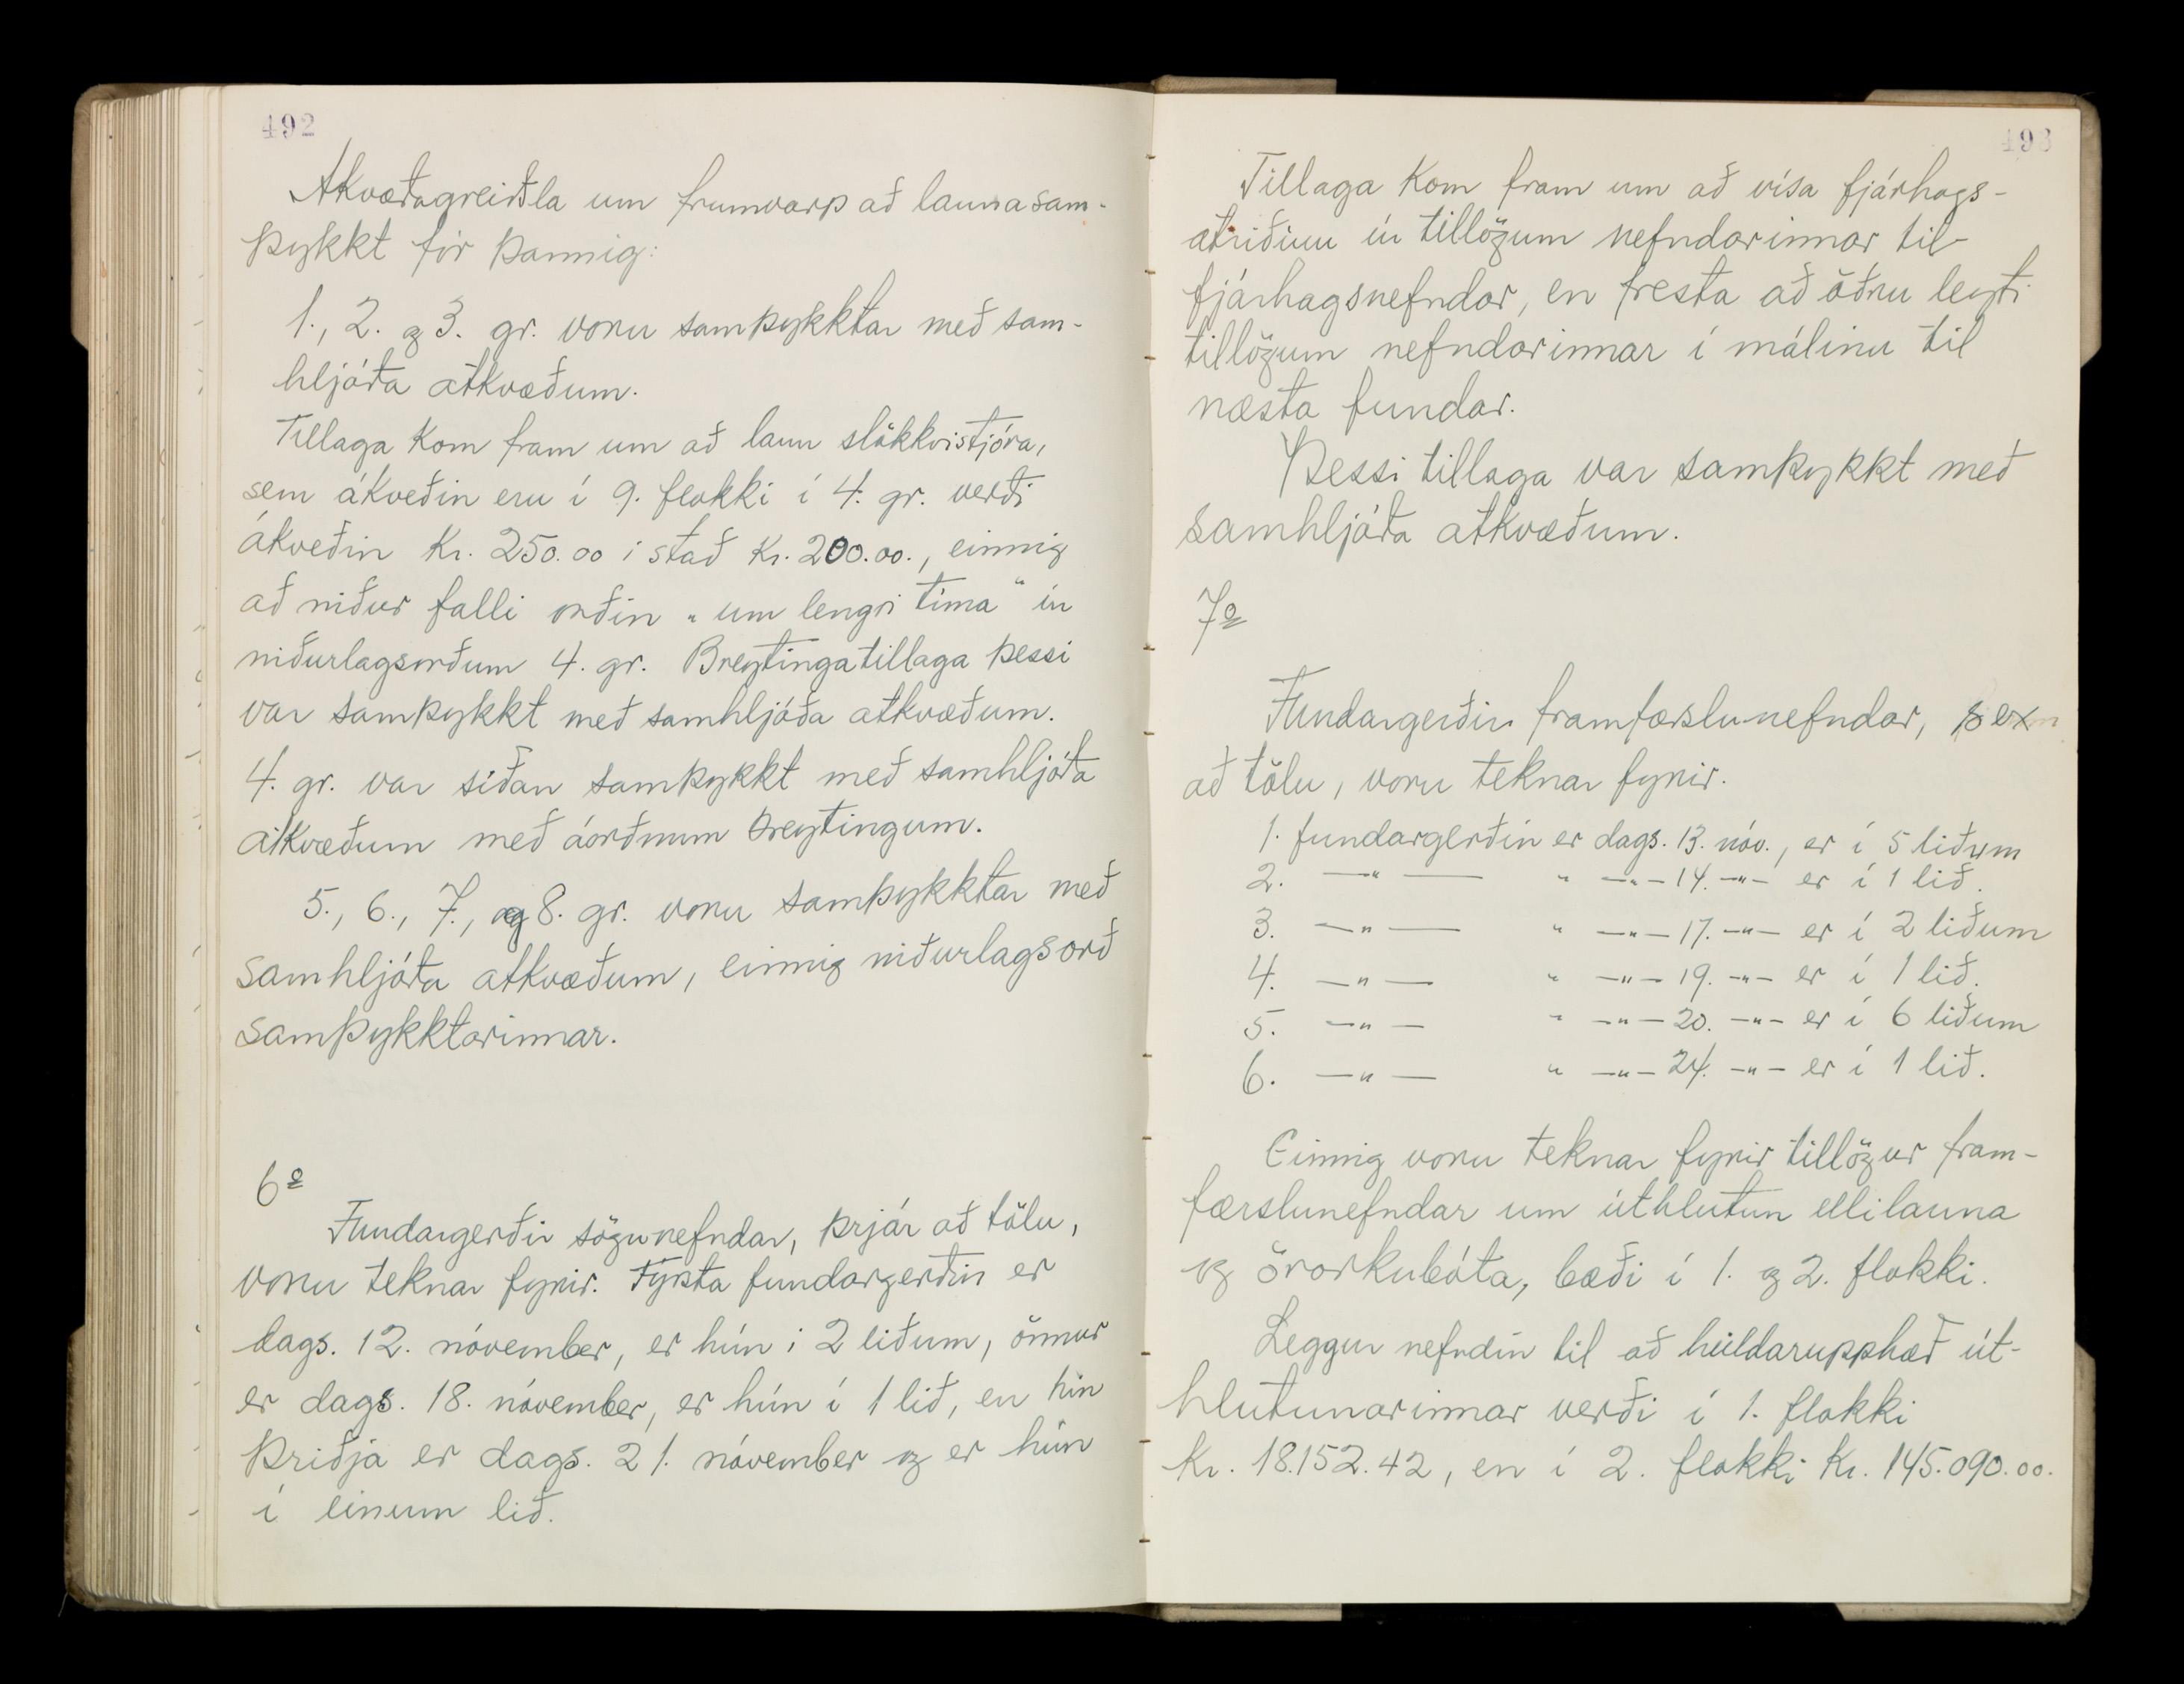 492
Atkvæðagreiðsla um frumvarp að launasam-
þykkt fór þannig:
1., 2. og 3. gr. voru samþykktar með sam-
hljóða atkvæðum.
Tillaga kom fram um að laun slökkvistjóra,
sem ákveðin eru í 9. flokki í 4. gr. verði
ákveðin kr. 250.00 í stað kr. 200.00., einnig
að niður falli orðin „um lengri tíma“ úr
niðurlagsorðum 4. gr. Breytingatillaga þessi
var samþykkt með samhljóða atkvæðum.
4. gr. var síðan samþykkt með samhljóða
atkvæðum með áorðnum breytingum.
5., 6., 7., og 8. gr. voru samþykktar með
samhljóða atkvæðum, einnig niðurlagsorð
samþykktarinnar.
6º
Fundargerðir sögunefndar, þrjár að tölu,
voru teknar fyrir. Fyrsta fundargerðin er
dags. 12. nóvember, er hún í 2 liðum, önnur
er dags. 18. nóvember, er hún í 1 lið, en hin
þriðja er dags. 21. nóvember og er hún
í einum lið.
493
Tillaga kom fram um að vísa fjárhags-
atriðinu úr tillögum nefndarinnar til
fjárhagsnefndar, en fresta að öðru leyti
tillögum nefndarinnar í málinu til
næsta fundar.
Þessi tillaga var samþykkt með
samhljóða atkvæðum.
7º
Fundargerðir framfærslunefndar, sex
að tölu, voru teknar fyrir.
1. fundargerðin er dags. 13. nóv., er í 5 liðum
2. —"— " —"— 14. —"— er í 1 lið.
3. —"— " —"— 17. —"— er í 2 liðum
4. —"— " —"— 19. —"— er í 1 lið.
5. —"— " —"— 20. —"— er í 6 liðum
6. —"— " —"— 24. —"— er í 1 lið.
Einnig voru teknar fyrir tillögur fram-
færslunefndar um úthlutun ellilauna
og örorkubóta, bæði í 1. og 2. flokki.
Leggur nefndin til að heildarupphæð út-
hlutunarinnar verði í 1. flokki
kr. 18.152.42, en í 2. flokki kr. 145.090.00.